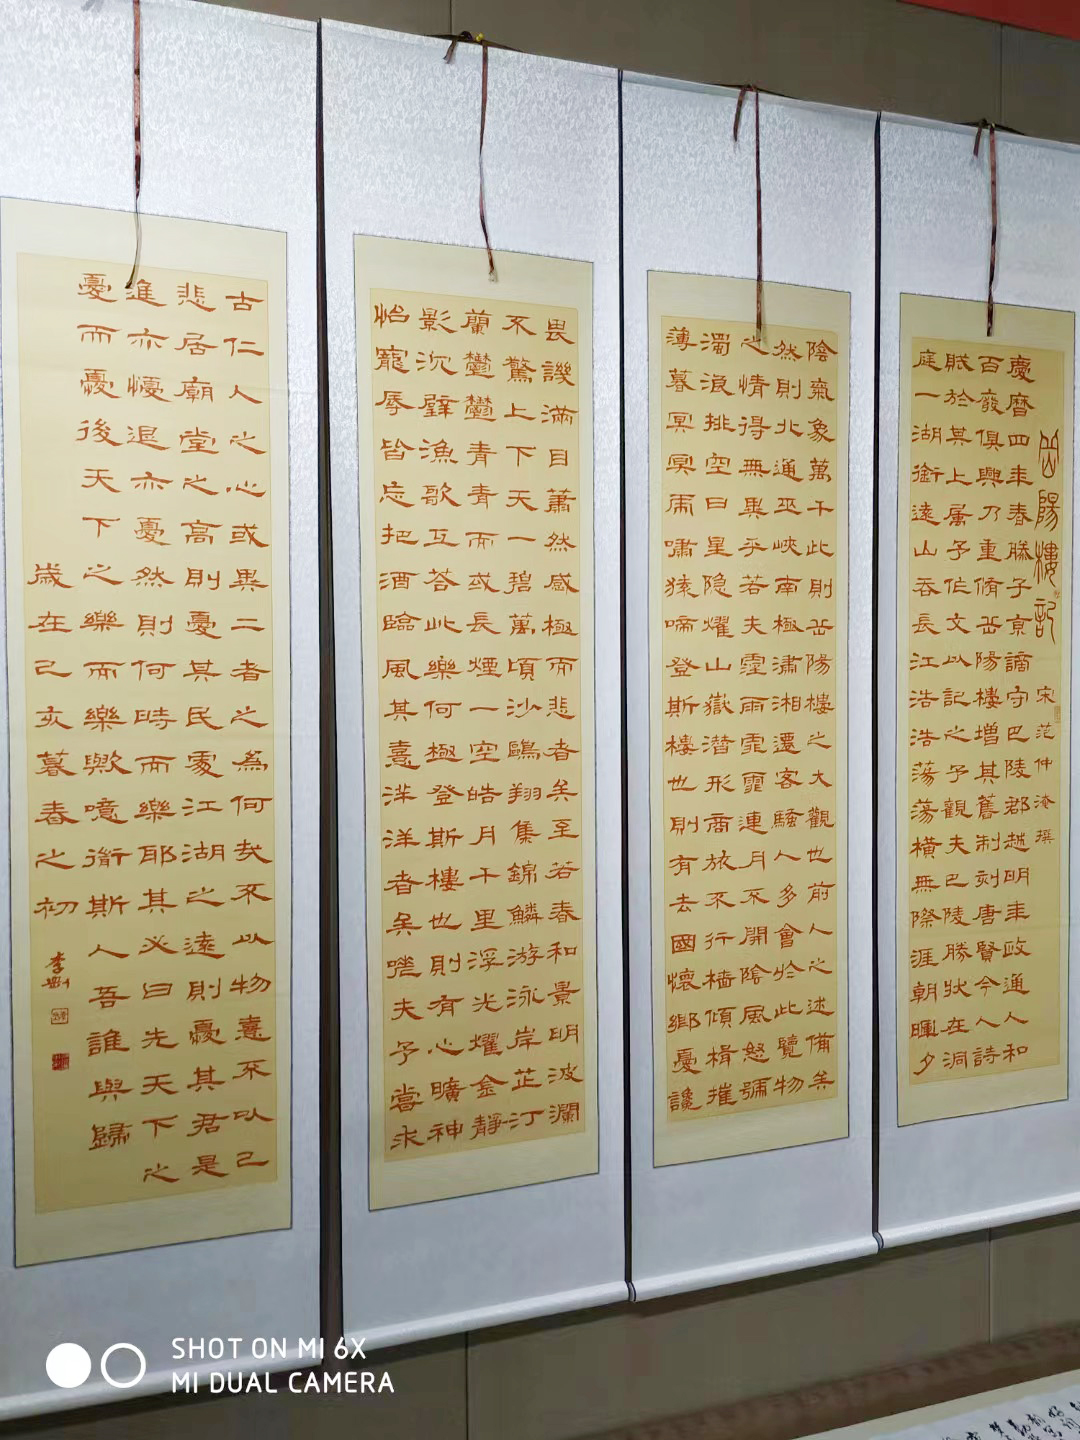 岳陽樓記
宋范仲淹撰
慶曆四年春滕子京謫守巴陵郡越明年政通人和
百廢俱興乃重脩岳陽樓增其舊制刻唐賢今人詩
賦於其上屬予作文以記之予觀夫巴陵勝狀在洞
庭一湖銜遠山吞長江浩浩蕩蕩橫無際涯朝暉夕
陰氣象萬千此則岳陽樓之大觀也前人之述備矣
然則北通巫峽南極瀟湘遷客騷人多會於此覽物
之情得無異乎若夫霪雨霏霏連月不開陰風怒號
濁浪排空日星隱燿山嶽潛形商旅不行檣傾楫摧
薄暮冥冥雨嘯猿啼登斯樓也則有去國懷鄉憂讒
畏譏滿目蕭然感極而悲者矣至若春和景明波瀾
不驚上下天一碧萬頃沙鷗翔集錦鱗游泳岸芷汀
蘭鬱鬱青青而或長煙一空皓月千里浮光燿金靜
影沉璧漁歌互答此樂何極登斯樓也則有心曠神
怡寵辱皆忘把酒臨風其喜洋洋者矣嗟夫予嘗求
古仁人之心或異二者之為何哉不以物喜不以己
悲居廟堂之高則憂其民處江湖之遠則憂其君是
進亦憂退亦憂然則何時而樂耶其必曰先天下之
憂而憂後天下之樂而樂歟噫微斯人吾誰與歸
歲在己亥暮春之初
李
SHOT ON MI 6X
MI DUAL CAMERA